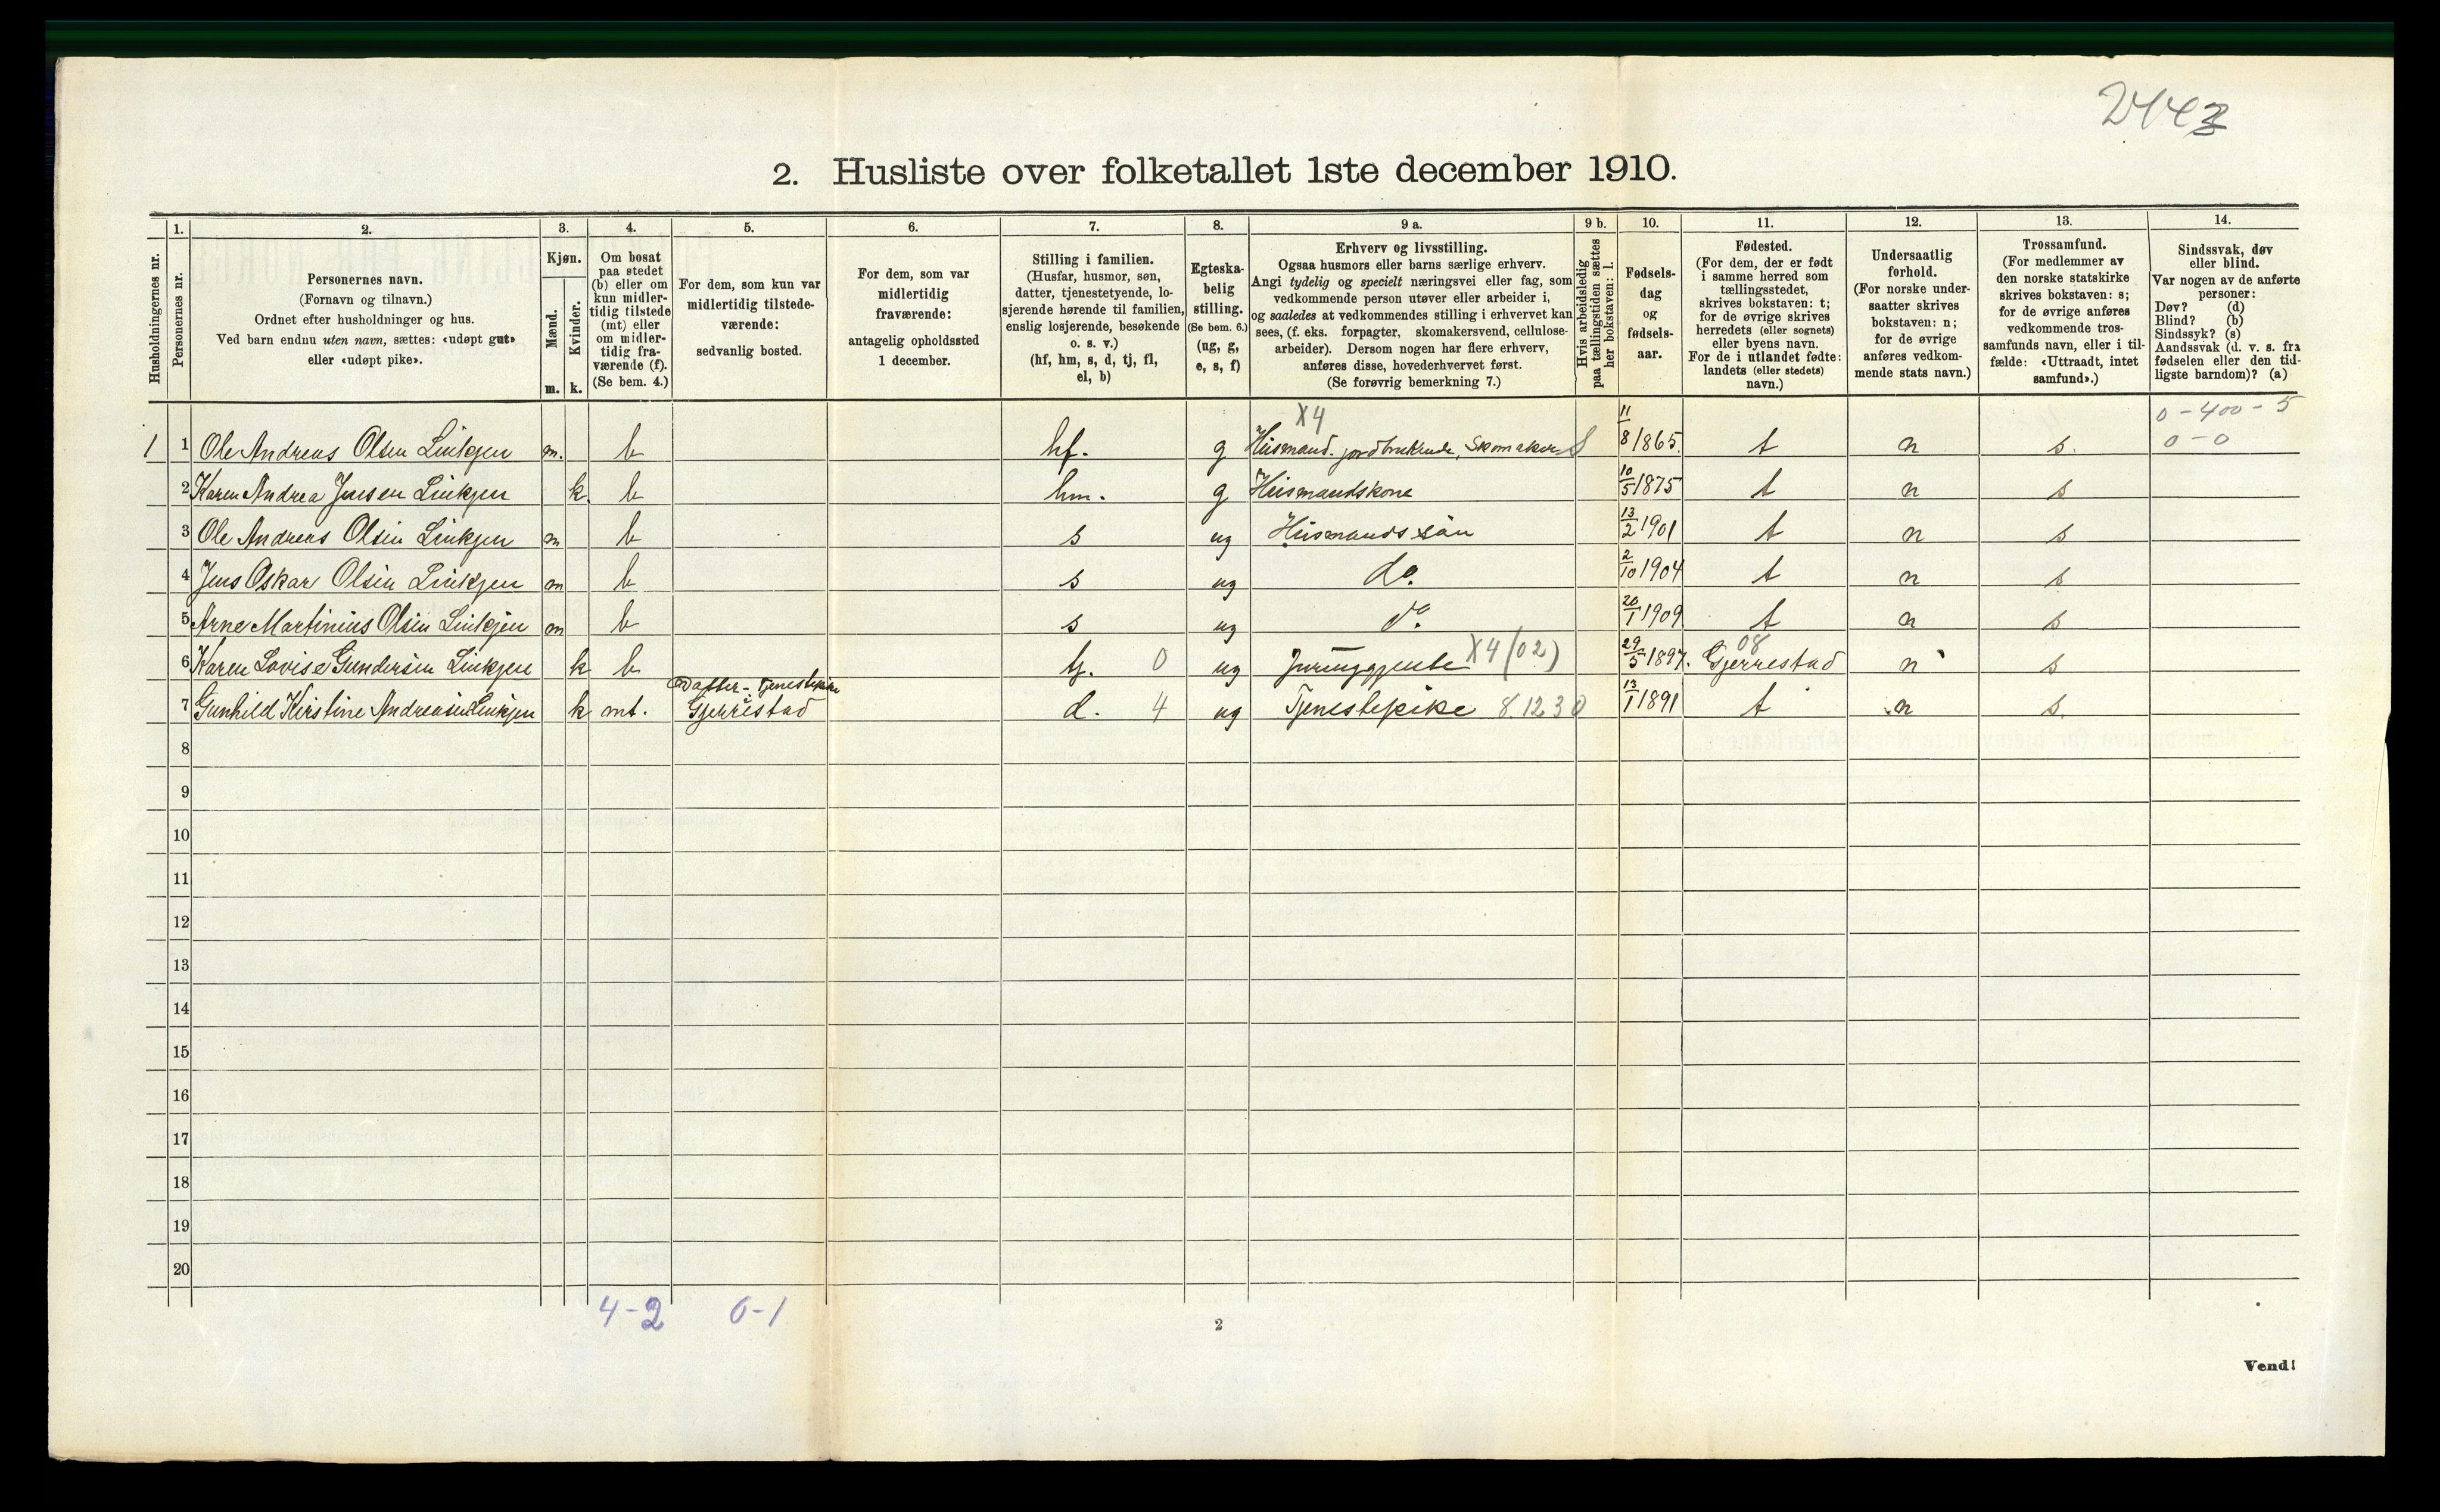 2443
2. Husliste over folketallet 1ste december 1910.
1. 2. 3. 4. 5. 6. 7. 8. 9 a. 9 b. 10. 11. 12. 13. 14.
Husholdningernes nr.
Personernes nr.
Personernes navn.
(Fornavn og tilnavn.)
Ordnet efter husholdninger og hus.
Ved barn endnu uten navn, sættes: «udøpt gut»
eller «udøpt pike».
Kjøn.
Mænd.
Kvinder.
m. k.
Om bosat
paa stedet
(b) eller om
kun midler-
tidig tilstede
(mt) eller
om midler-
tidig fra-
værende (f).
(Se bem. 4.)
For dem, som kun var
midlertidig tilstede-
værende:
sedvanlig bosted.
For dem, som var
midlertidig
fraværende:
antagelig opholdssted
1 december.
Stilling i familien.
(Husfar, husmor, søn,
datter, tjenestetyende, lo-
sjerende hørende til familien,
enslig losjerende, besøkende
o. s. v.)
(hf, hm, s, d, tj, fl,
el, b)
Egteska-
belig
stilling.
(Se bem. 6.)
(ug, g,
e, s, f)
Erhverv og livsstilling.
Ogsaa husmors eller barns særlige erhverv.
Angi tydelig og specielt næringsvei eller fag, som
vedkommende person utøver eller arbeider i,
og saaledes at vedkommendes stilling i erhvervet kan
sees, (f. eks. forpagter, skomakersvend, cellulose-
arbeider). Dersom nogen har flere erhverv,
anføres disse, hovederhvervet først.
(Se forøvrig bemerkning 7.)
Hvis arbeidsledig
paa tællingstiden sættes
her bokstaven: l.
Fødsels-
dag
og
fødsels-
aar.
Fødested.
(For dem, der er født
i samme herred som
tællingsstedet,
skrives bokstaven: t;
for de øvrige skrives
herredets (eller sognets)
eller byens navn.
For de i utlandet fødte:
landets (eller stedets)
navn.)
Undersaatlig
forhold.
(For norske under-
saatter skrives
bokstaven: n;
for de øvrige
anføres vedkom-
mende stats navn.)
Trossamfund.
(For medlemmer av
den norske statskirke
skrives bokstaven: s;
for de øvrige anføres
vedkommende tros-
samfunds navn, eller i til-
fælde: «Uttraadt, intet
samfund».)
Sindssvak, døv
eller blind.
Var nogen av de anførte
personer:
Døv? (d)
Blind? (b)
Sindssyk? (s)
Aandssvak (d. v. s. fra
fødselen eller den tid-
ligste barndom)? (a)
X4 0 - 400 - 5
0 - 0
1 1 Ole Andreas Olsen Linkjen m. b hf. g Husmand. jordbrukende, Skomaker 11/8 1865. t n s.
2 Karen Andrea Jensen Linkjen k. b hm. g Husmandskone 10/5 1875 t n s
3 Ole Andreas Olsen Linkjen m b s ug Husmandssøn 13/2 1901 t n s
4 Jens Oskar Olsen Linkjen m b s ug do. 2/10 1904 t n s
5 Arne Martinius Olsen Linkjen m b s ug do. 20/1 1909. t n s
X4 (02) 08
6 Karen Lovise Gundersen Linkjen k b tj. 0 ug 29/5 1897. Gjerrestad n s
Datter - Tjenestepike
7 Gunhild Kirstine Andreasen Linkjen k mt. Gjerrestad d. 4 ug Tjenestepike 8.12 3 0 13/1 1891 t n s.
8
9
10
11
12
13
14
15
16
17
18
19
20
4-2 0-1
2
Vend!